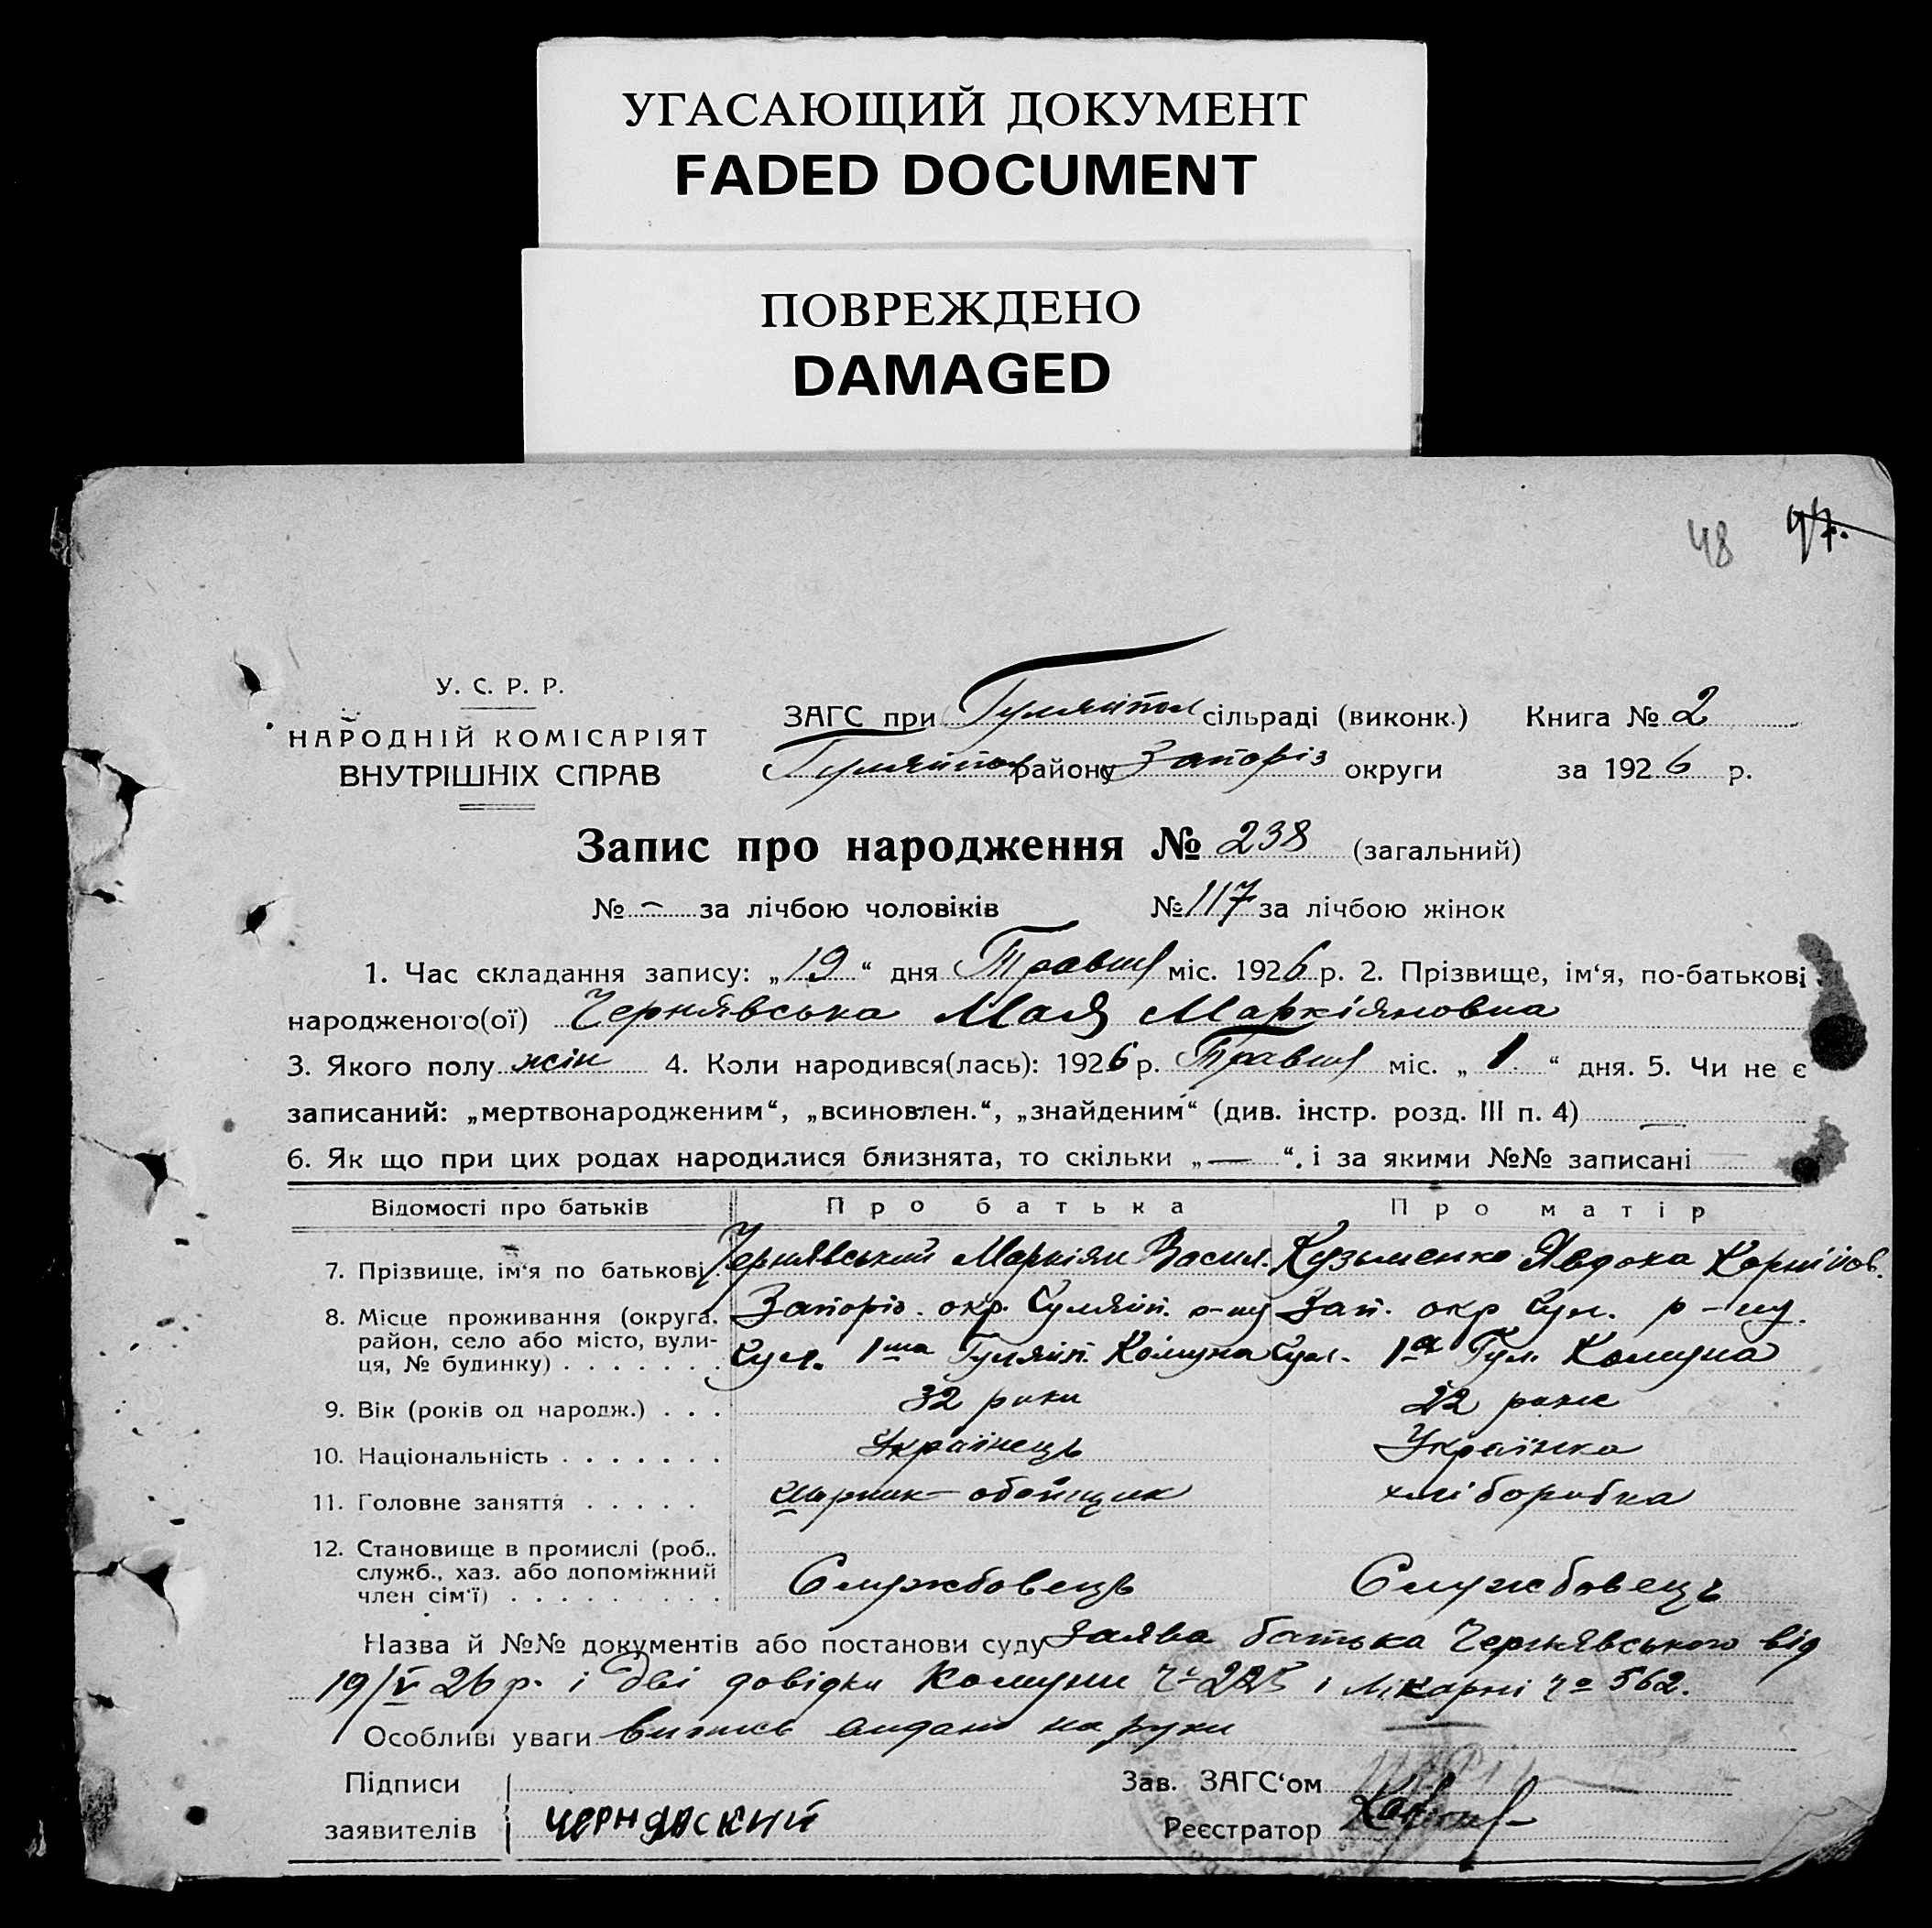 УГАСАЮЩИЙ ДОКУМЕНТ
FADED DOCUMENT
ПОВРЕЖДЕНО
DAMAGED
48 47.
У. С. Р. Р.
НАРОДНІЙ КОМІСАРІЯТ
ВНУТРІШНІХ СПРАВ
ЗАГС при Гуляйпол сільраді (виконк.) Книга № 2
Гуляйпол району Запоріз округи за 1926 р.
Запис про народження № 238 (загальний)
№ – за лічбою чоловіків № 117 за лічбою жінок
1. Час складання запису: „19“ дня Травня міс. 1926 р. 2. Прізвище, ім‘я, по-батькові
народженого(ої) Чернявська Мая Маркіяновна
3. Якого полу жін 4. Коли народився(лась): 1926 р. Травня міс. „1“ дня. 5. Чи не є
записаний: „мертвонародженим“, „всиновлен.“, „знайденим“ (див. інстр. розд. III п. 4) —
6. Як що при цих родах народилися близнята, то скільки „—“, і за якими №№ записані —
Відомості про батьків Про батька Про матір
7. Прізвище, ім‘я по батькові. Чернявський Маркіян Васил. Кузьменко Явдока Корнійов.
8. Місце проживання (округа, район, село або місто, вули-ця, № будинку) . . . . . . . Запоріз. окр. Гуляйп. р-ну Зап. окр Гул. р-ну.
Гул. 1ша Гуляйп. Комуна Гул. 1а Гул. Комуна
9. Вік (років од народж.) . . . 32 роки 22 роки
10. Національність . . . . . . . Українець Українка
11. Головне заняття . . . . . обойщик хліборобка
12. Становище в промислі (роб., служб., хаз. або допоміжний член сім‘ї) . . . . . . . . . Службовець Службовець
Назва й №№ документів або постанови суду Заява батька Чернявського від
19/V 26 р. і дві довідки Комуни ч 225 і Лікарні чо 562.
Особливі уваги випись видано на руки
Підписи Зав. ЗАГС‘ом
заявителів ЧЕРНЯВСКИЙ Реєстратор